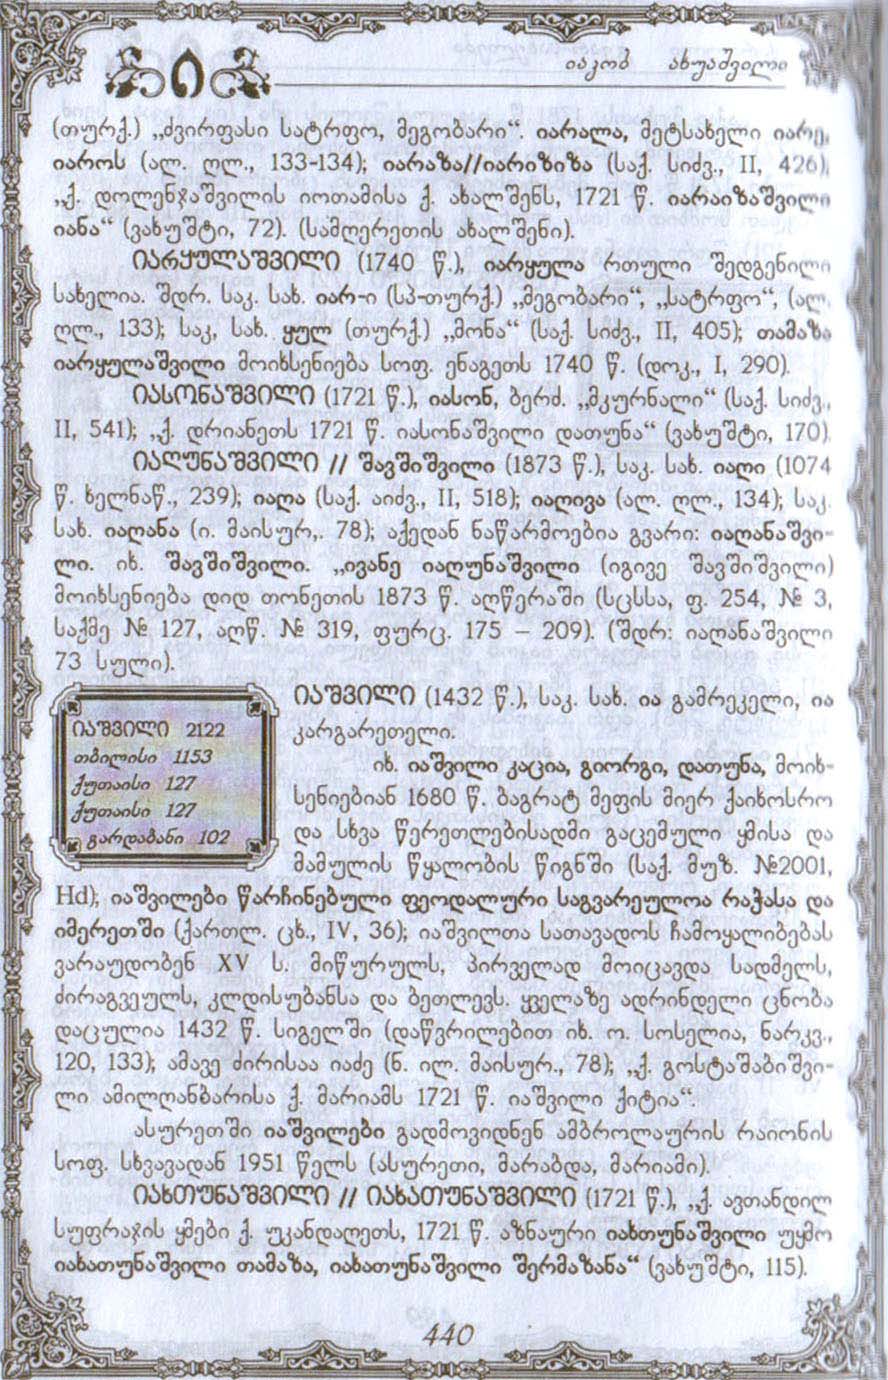 ი
იაკობ ახუაშვილი
(თურქ.) „ძვირფასი სატრფო, მეგობარი“. იარალა, მეტსახელი იარე,
იაროს (ალ. ღლ., 133-134); იარაზა//იარიზიზა (საქ. სიძვ., II, 426),
„ქ. დოლენჯაშვილის იოთამისა ქ. ახალშენს, 1721 წ. იარაიზაშვილი
იანა“ (ვახუშტი, 72). (სამღერეთის ახალშენი).
ᲘᲐᲠᲧᲣᲚᲐᲨᲕᲘᲚᲘ (1740 წ.), იარყულა რთული შედგენილი
სახელია. შდრ. საკ. სახ. იარ-ი (სპ-თურქ.) „მეგობარი“, „სატრფო“, (ალ.
ღლ., 133); საკ, სახ. ყულ (თურქ.) „მონა“ (საქ. სიძვ., II, 405); თამაზა
იარყულაშვილი მოიხსენიება სოფ. ენაგეთს 1740 წ. (დოკ., I, 290).
ᲘᲐᲡᲝᲜᲐᲨᲕᲘᲚᲘ (1721 წ.), იასონ, ბერძ. „მკურნალი“ (საქ. სიძვ.,
II, 541); „ქ. დრიანეთს 1721 წ. იასონაშვილი დათუნა“ (ვახუშტი, 170).
ᲘᲐᲦᲣᲜᲐᲨᲕᲘᲚᲘ // შავშიშვილი (1873 წ.), საკ. სახ. იაღი (1074
წ. ხელნაწ., 239); იაღა (საქ. აიძვ., II, 518); იაღივა (ალ. ღლ., 134); საკ.
სახ. იაღანა (ი. მაისურ,. 78); აქედან ნაწარმოებია გვარი: იაღანაშვი-
ლი. იხ. შავშიშვილი. „ივანე იაღუნაშვილი (იგივე შავშიშვილი)
მოიხსენიება დიდ თონეთის 1873 წ. აღწერაში (სცსსა, ფ. 254, № 3,
საქმე № 127, აღწ. № 319, ფურც. 175 – 209). (შდრ: იაღანაშვილი
73 სული).
ᲘᲐᲨᲕᲘᲚᲘ 2122
თბილისი 1153
ქუთაისი 127
ქუთაისი 127
გარდაბანი 102
ᲘᲐᲨᲕᲘᲚᲘ (1432 წ.), საკ. სახ. ია გამრეკელი, ია
კარგარეთელი.
იხ. იაშვილი კაცია, გიორგი, დათუნა, მოიხ-
სენიებიან 1680 წ. ბაგრატ მეფის მიერ ქაიხოსრო
და სხვა წერეთლებისადმი გაცემული ყმისა და
მამულის წყალობის წიგნში (საქ. მუზ. №2001,
Hd); იაშვილები წარჩინებული ფეოდალური საგვარეულოა რაჭასა და
იმერეთში (ქართლ. ცხ., IV, 36); იაშვილთა სათავადოს ჩამოყალიბებას
ვარაუდობენ XV ს. მიწურულს, პირველად მოიცავდა სადმელს,
ძირაგვეულს, კლდისუბანსა და ბეთლევს. ყველაზე ადრინდელი ცნობა
დაცულია 1432 წ. სიგელში (დაწვრილებით იხ. ო. სოსელია, ნარკვ.,
120, 133); ამავე ძირისაა იაძე (ნ. ილ. მაისურ., 78); „ქ. გოსტაშაბიშვი-
ლი ამილღანბარისა ქ. მარიამს 1721 წ. იაშვილი ქიტია“.
ასურეთში იაშვილები გადმოვიდნენ ამბროლაურის რაიონის
სოფ. სხვავადან 1951 წელს (ასურეთი, მარაბდა, მარიამი).
ᲘᲐᲮᲗᲣᲜᲐᲨᲕᲘᲚᲘ // ᲘᲐᲮᲐᲗᲣᲜᲐᲨᲕᲘᲚᲘ (1721 წ.), „ქ. ავთანდილ
სუფრაჯის ყმები ქ. უკანდაღეთს, 1721 წ. აზნაური იახთუნაშვილი უყმო
იახათუნაშვილი თამაზა, იახათუნაშვილი შერმაზანა“ (ვახუშტი, 115).
440